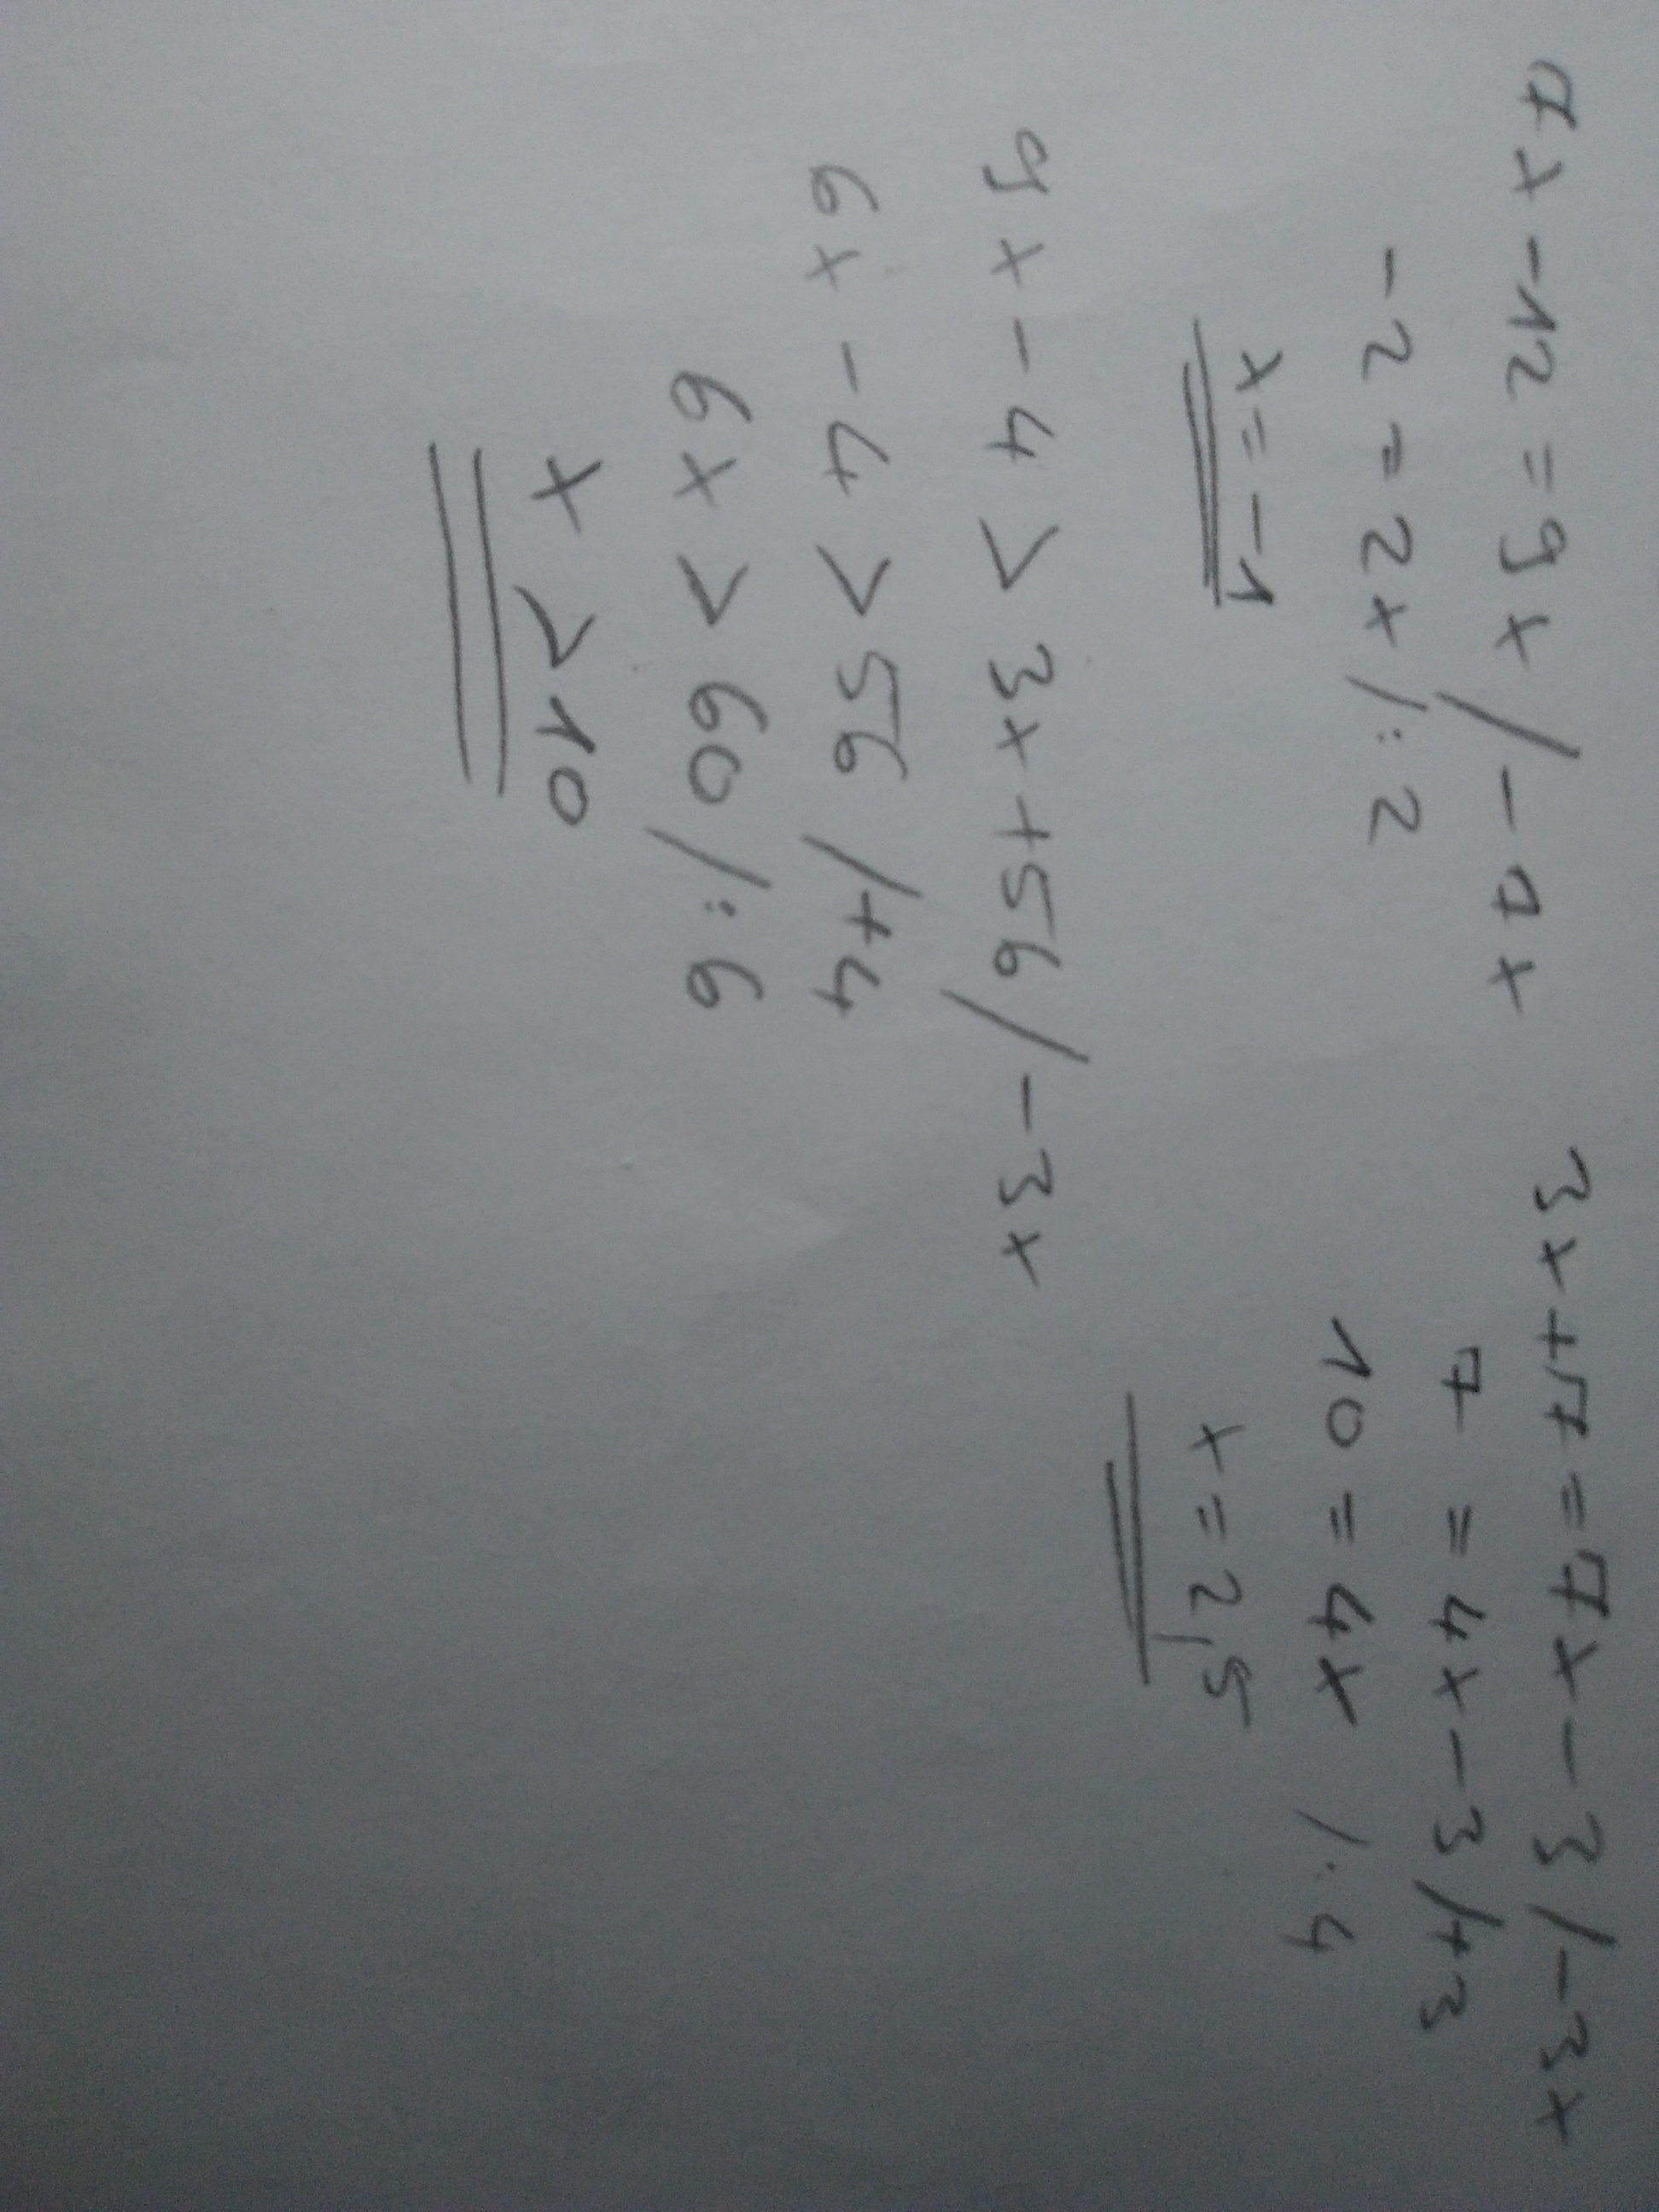 7x - 12 = 9x / - 7x
- 2 = 2x / : 2
x = -1
3x + 7 = 7x - 3 / - 3x
7 = 4x - 3 / + 3
10 = 4x / : 4
x = 2,5
9x - 4 > 3x + 56 / - 3x
6x - 4 > 56 / + 4
6x > 60 / : 6
x > 10